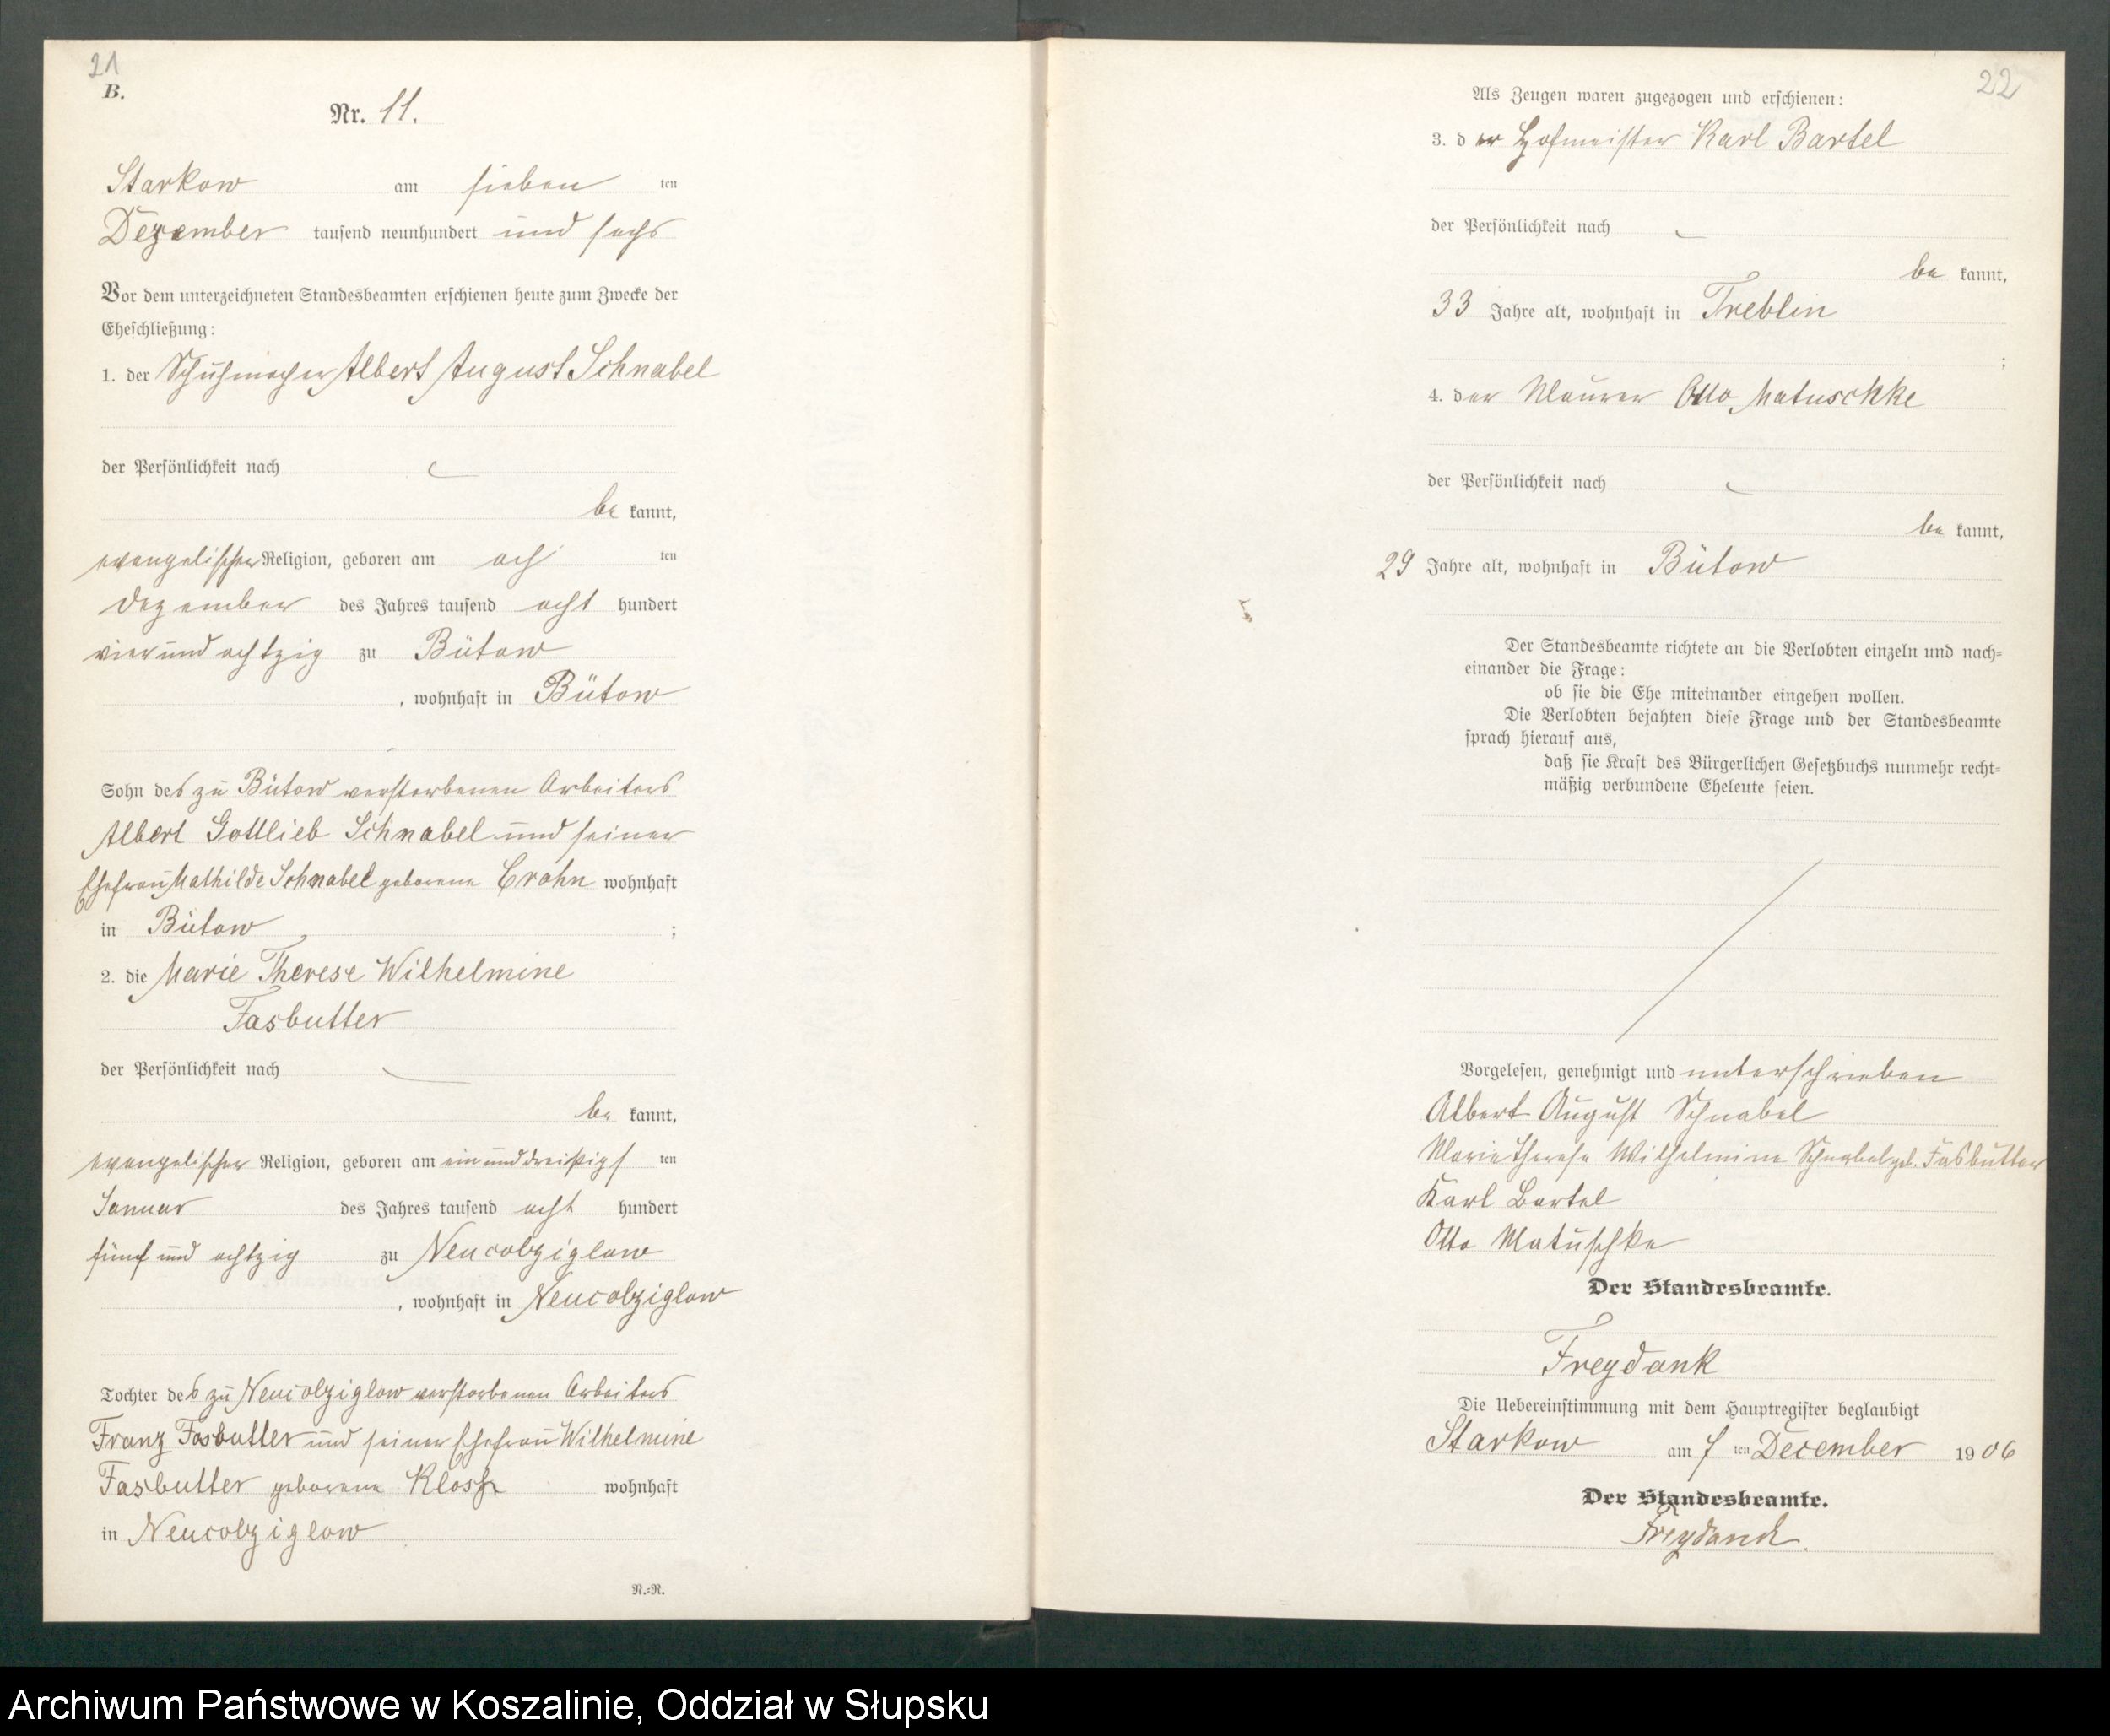 21
B.
Nr. 11.
Starkow am sieben ten
Dezember tausend neunhundert und sechs
Vor dem unterzeichneten Standesbeamten erschienen heute zum Zwecke der
Eheschließung:
1. der Schuhmacher Albert August Schnabel
der Persönlichkeit nach
be kannt,
evangelischer Religion, geboren am ach ten
Dezember des Jahres tausend acht hundert
vier und achtzig zu Bütow
, wohnhaft in Bütow
Sohn des zu Bütow verstorbenen Arbeiters
Albert Gottlieb Schnabel und seiner
Ehefrau Mathilde Schnabel geborene Crohn wohnhaft
in Bütow ;
2. die Marie Therese Wilhelmine
Fasbutter
der Persönlichkeit nach
be kannt,
evangelischer Religion, geboren am ein und dreißigs ten
Januar des Jahres tausend acht hundert
fünf und achtzig zu Neucolziglow
, wohnhaft in Neucolziglow
Tochter des zu Neucolziglow verstorbenen Arbeiters
Franz Fasbutter und seiner Ehefrau Wilhelmine
Fasbutter geborene wohnhaft
in Neucolziglow
N.=N.
22
Als Zeugen waren zugezogen und erschienen:
3. der Hofmeister Karl Bartel
der Persönlichkeit nach
be kannt,
33 Jahre alt, wohnhaft in Treblin
;
4. der Maurer Otto Matuschke
der Persönlichkeit nach
be kannt,
29 Jahre alt, wohnhaft in Bütow
Der Standesbeamte richtete an die Verlobten einzeln und nach=
einander die Frage:
ob sie die Ehe miteinander eingehen wollen.
Die Verlobten bejahten diese Frage und der Standesbeamte
sprach hierauf aus,
daß sie Kraft des Bürgerlichen Gesetzbuchs nunmehr recht=
mäßig verbundene Eheleute seien.
Vorgelesen, genehmigt und unterschrieben
Albert August Schnabel
Marie Therese Wilhelmine Schnabel geb. Fasbutter
Karl Bartel
Otto Matuschke
Der Standesbeamte.
Freydank
Die Uebereinstimmung mit dem Hauptregister beglaubigt
Starkow am 7 ten December 1906
Der Standesbeamte.
Freydank.
Archiwum Państwowe w Koszalinie, Oddział w Słupsku